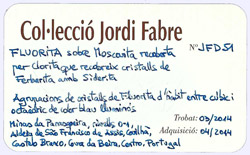 Col·lecció Jordi Fabre
FLUORITA sobre Moscovita recoberta Nº JFD51
per Clorita que recobreix cristalls de
Ferberita amb Siderita
Agrupacions de cristalls de Fluorita d'hàbit entre cúbic i
octaèdric de color blau lluminós
Trobat: 03/2014
Minas da Panasqueira, nivell 0-1,
Aldeia de São Francisco de Assis, Covilhã, Adquisició: 04/2014
Castelo Branco, Cova da Beira, Centro, Portugal